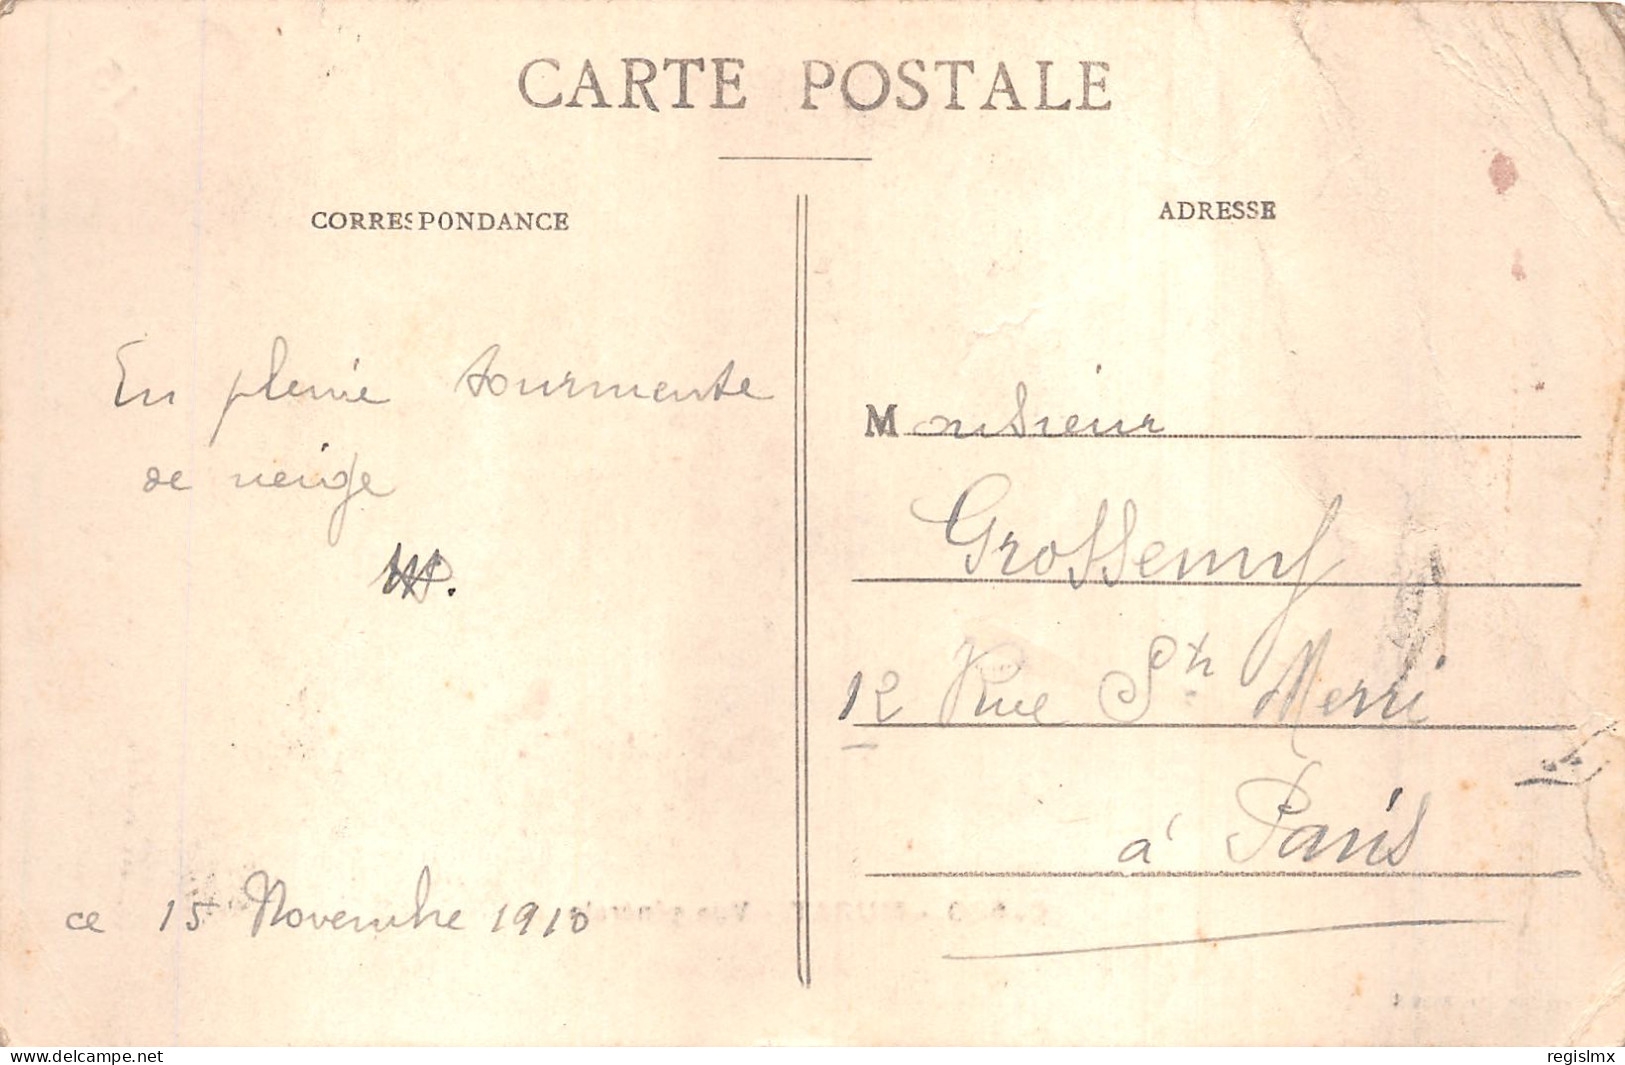 CARTE POSTALE
CORRESPONDANCE
ADRESSE
En pleine tourmente
de neige
ce 15 Novembre 1910
Monsieur
12 Rue St Merri
à Paris
www.delcampe.net
regislmx